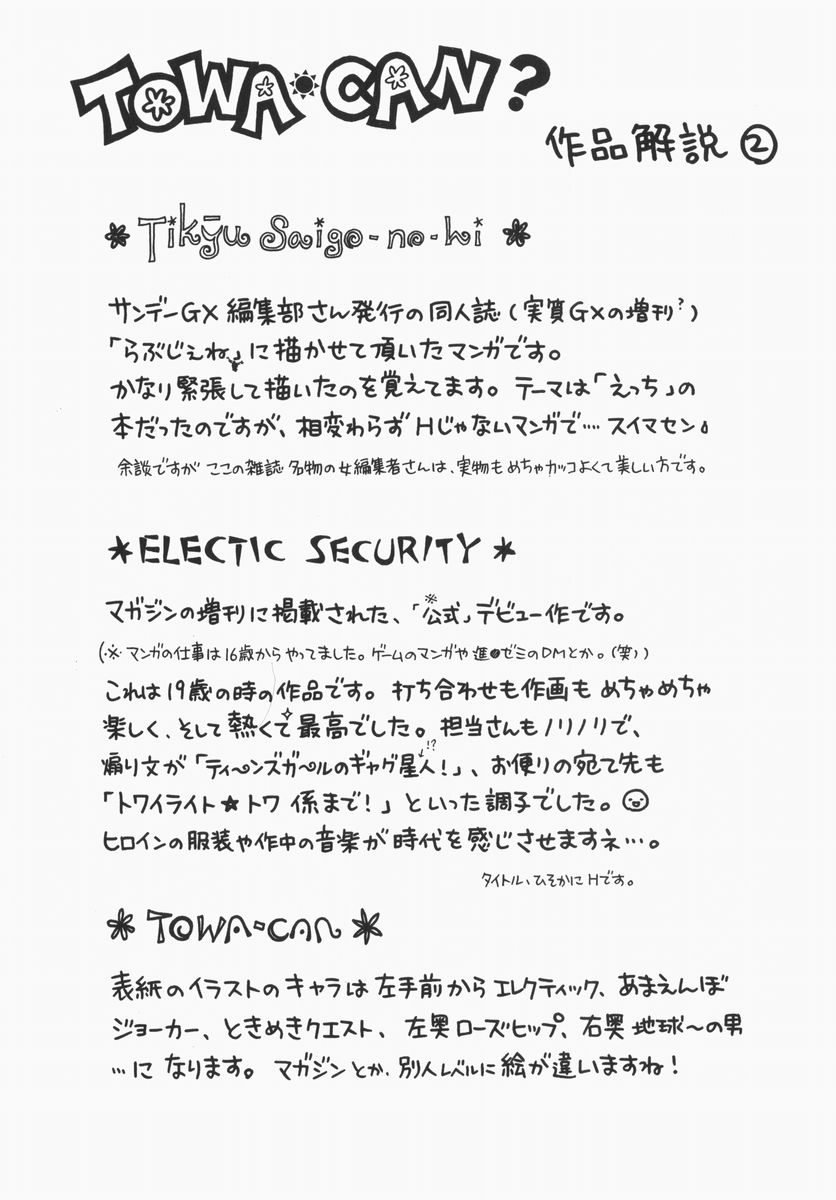 TOWA・CAN?
作品解説②
* Tikyū Saigo-no-hi *
サンデーGX 編集部さん発行の同人誌(実質GXの増刊?)
「らぶじぇね」に描かせて頂いたマンガです。
かなり緊張して描いたのを覚えてます。テーマは「えっち」の
本だったのですが、相変わらずHじゃないマンガで…スイマセン
余談ですが ここの雑誌 名物の女編集者さんは、実物もめちゃカッコよくて美しい方です。
*ELECTIC SECURITY*
マガジンの増刊に掲載された、「公式」※デビュー作です。
(※マンガの仕事は16歳からやってました。ゲームのマンガや進●ゼミのDMとか。(笑))
これは19歳の時の作品です。打ち合わせも作画もめちゃめちゃ
楽しく、そして熱くて最高でした。担当さんもノリノリで、
煽り文が「ティ〜ンズガ〜ルのギャグ星人!」、お便りの宛て先も
!?
「トワイライト★トワ 係まで!」といった調子でした。
ヒロインの服装や作中の音楽が時代を感じさせますネ…。
タイトル、ひそかにHです。
* TOWA・CAN *
表紙のイラストのキャラは左手前からエレクティック、あまえんぼ
ジョーカー、ときめきクエスト、左奥ローズヒップ、右奥 地球〜の男
…になります。マガジンとか、別人レベルに絵が違いますね!